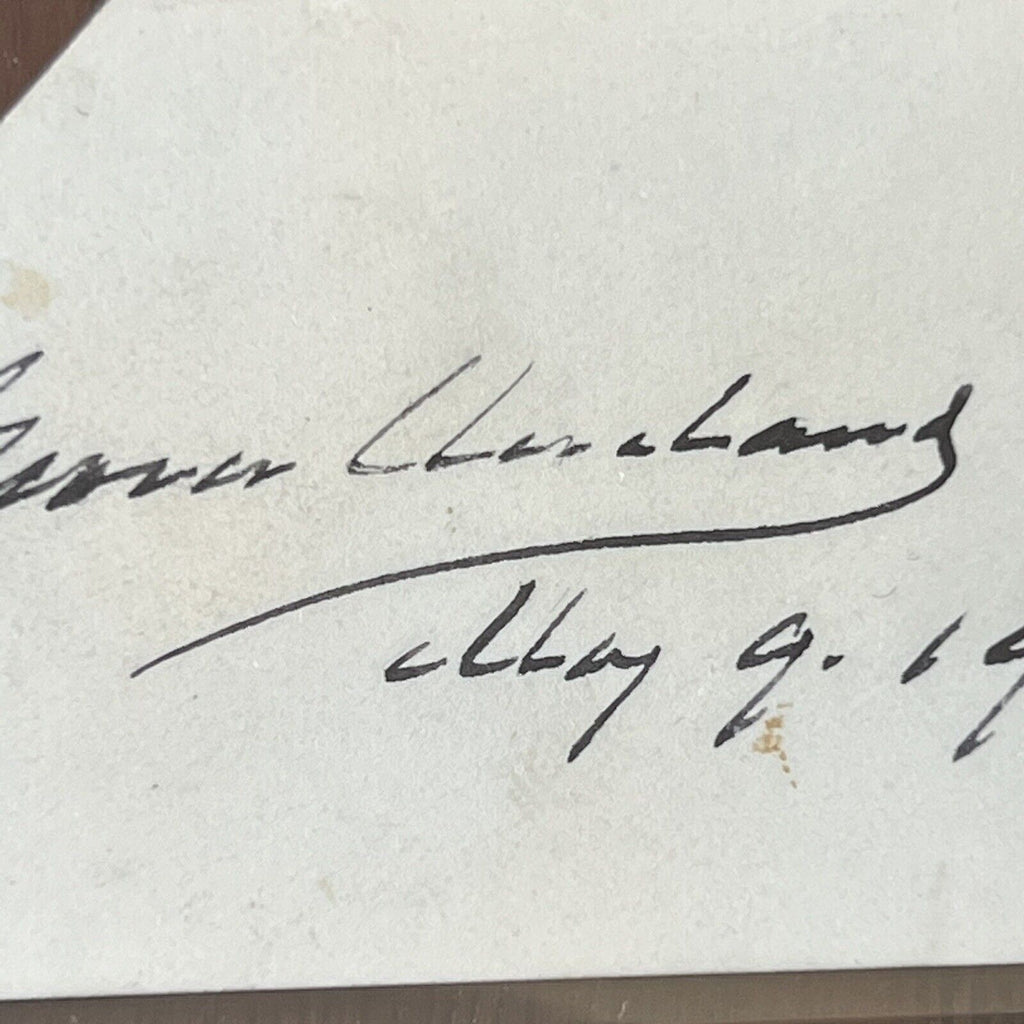 Grover Cleveland
May 9. 19